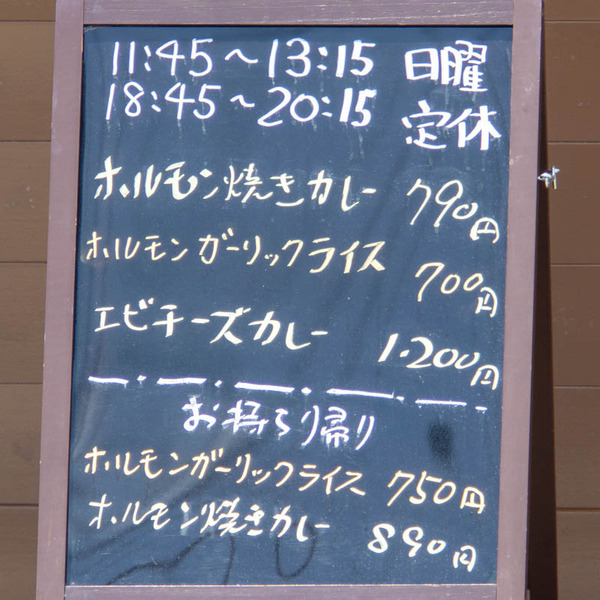 11:45～13:15 日曜
18:45～20:15 定休
ホルモン焼きカレー 790円
ホルモンガーリックライス 700円
エビチーズカレー 1.200円
お持ち帰り
ホルモンガーリックライス 750円
ホルモン焼きカレー 890円